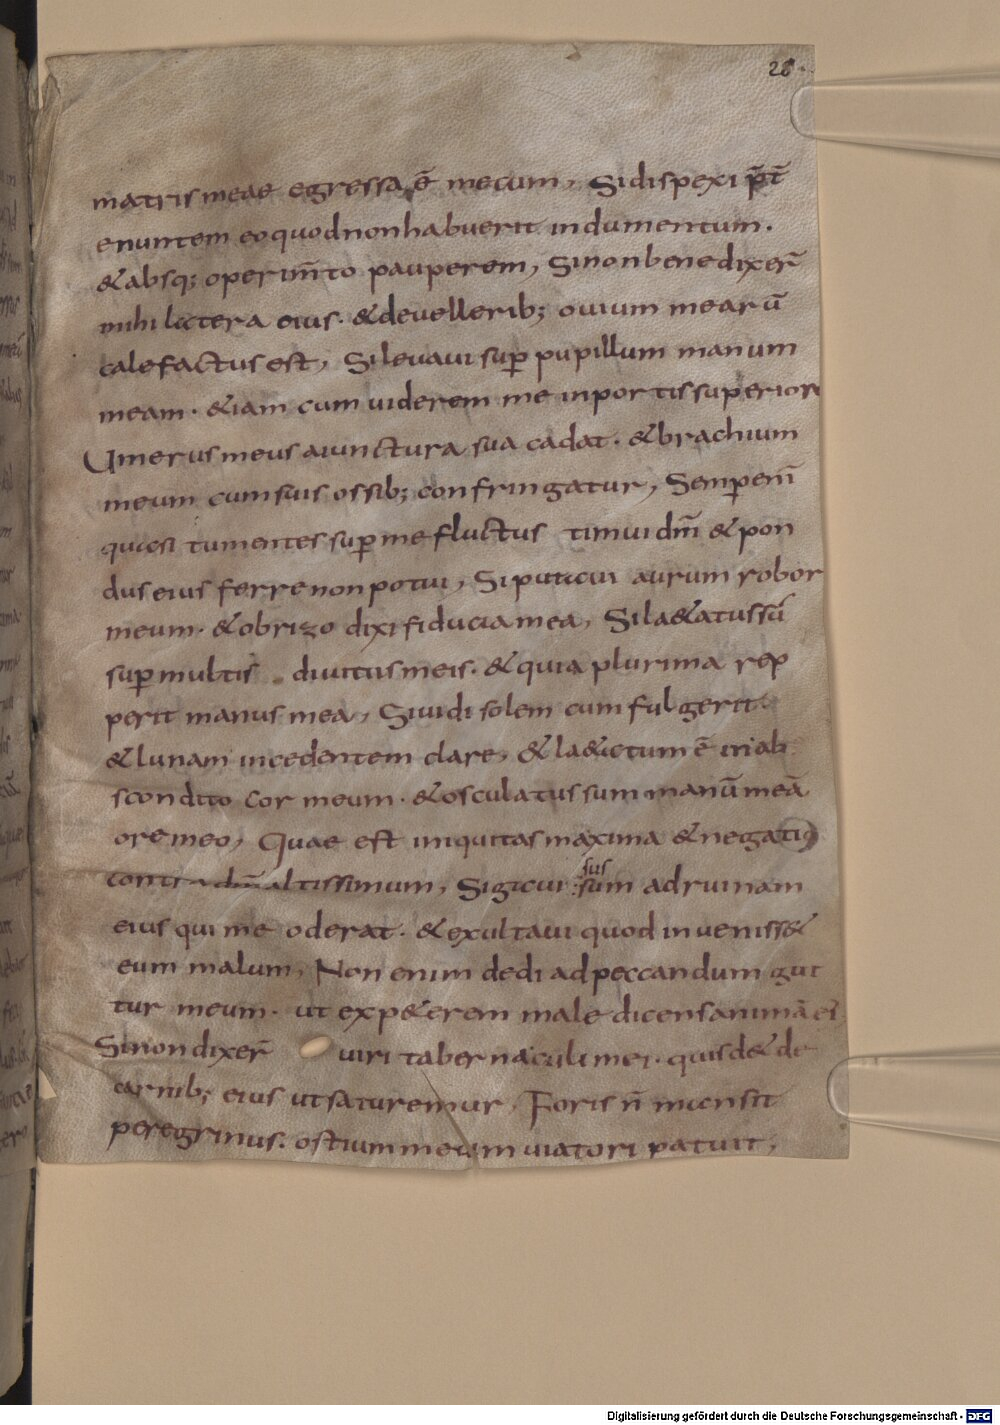 28
matris meae egressa ē mecum, Si dispexi p̄t
enuntem eo quod non habuerit indumentum.
& absq; operim̄to pauperem, Si non benedixer̄
mihi latera eius. & de velleribꝫ ovium mearū
calefactus est, Si levavi sup̄ pupillum manum
meam. & iam cum viderem me in portis superiorē
Umerus meus a iunctura sua cadat. & brachium
meum cum suis ossibꝫ confringatur, Semp̄ enī
quasi tumentes sup̄ me fluctus timui dm̄ & pon
dus eius ferre non potui, Si putavi aurum robor
meum. & obrizo dixi fiducia mea, Si la&atus sū
sup̄ multis divitiis meis. & quia plurima rep
perit manus mea, Si vidi solem cum fulgerit
& lunam incedentem clare, & la&atum ē in ab
scondito cor meum. & osculatus sum manū meā
ore meo, Quae est iniquitas maxima & negatio
contra dm̄ altissimum, Si gavi sus
sum ad ruinam
eius qui me oderat. & exultavi quod inveniss&
eum malum, Non enim dedi ad peccandum gut
tur meum. ut exp&erem maledicens animā eī
Si non dixer̄ viri tabernaculi mei. quis d& de
carnibꝫ eius ut saturemur, Foris n̄ mansit
peregrinus. ostium meum viatori patuit,
Digitalisierung gefördert durch die Deutsche Forschungsgemeinschaft - DFG